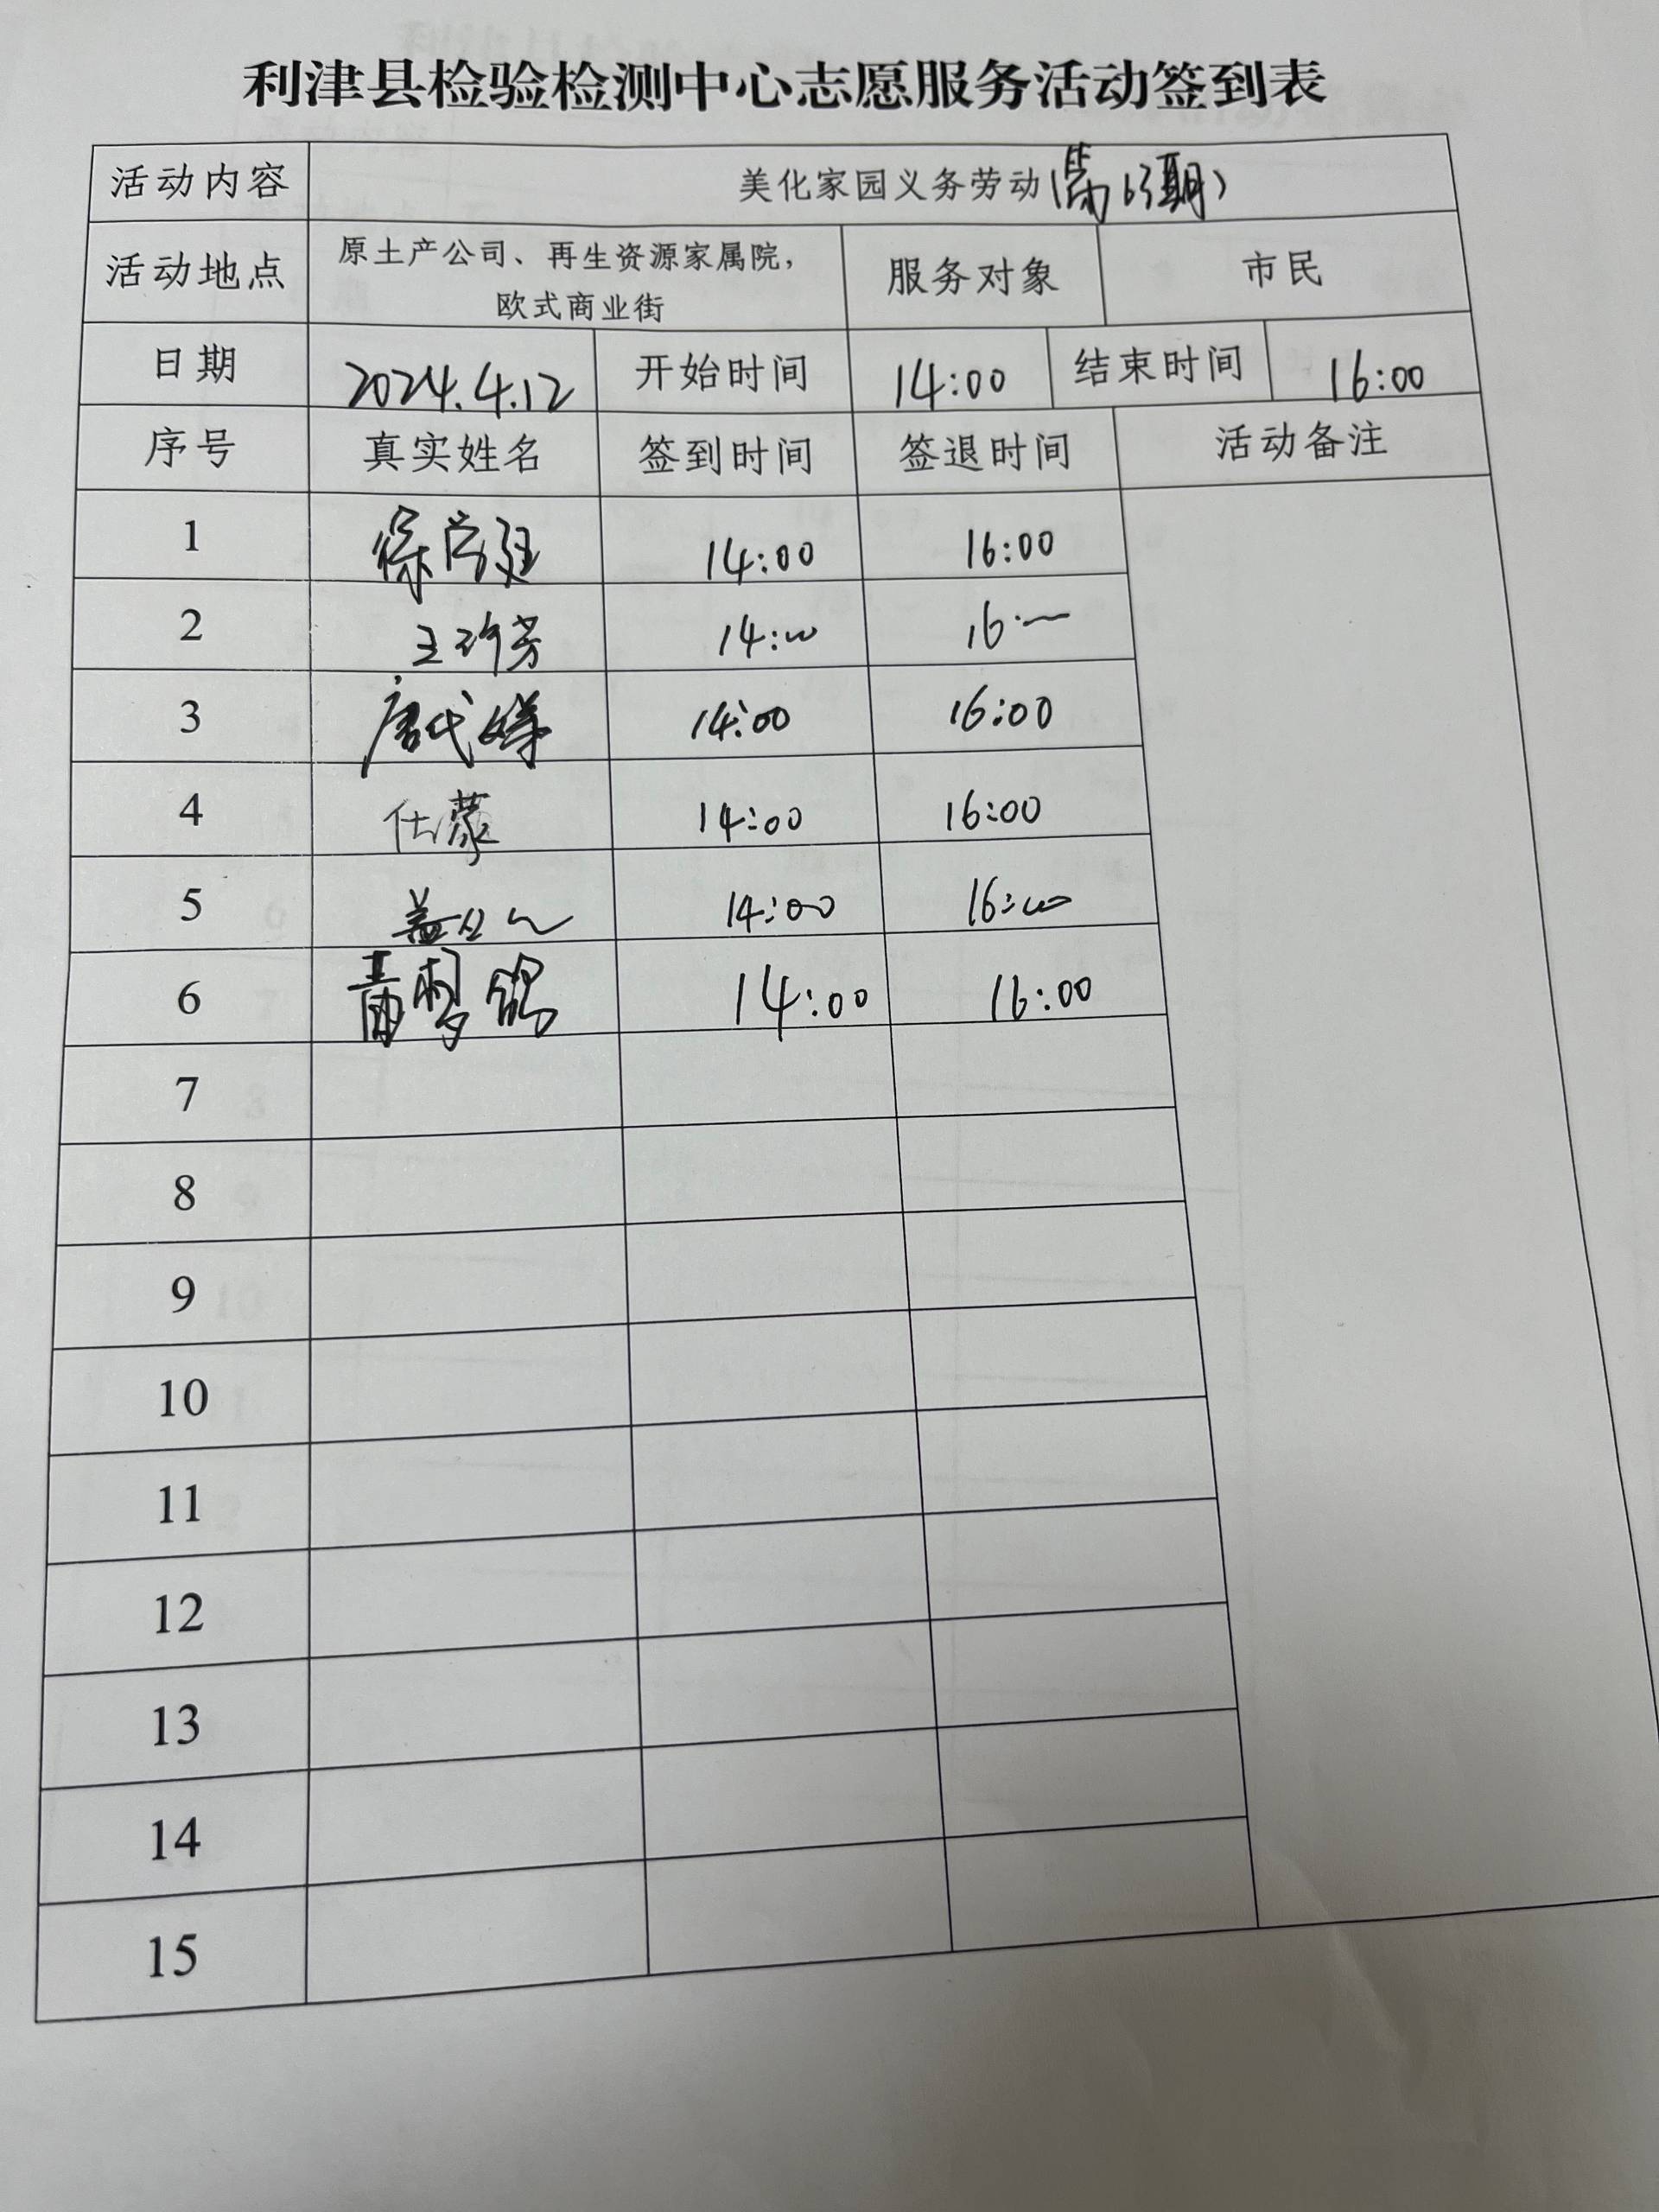 利津县检验检测中心志愿服务活动签到表
活动内容 美化家园义务劳动(第63期)
活动地点 原土产公司、再生资源家属院，
欧式商业街 服务对象 市民
日期 2024.4.12 开始时间 14:00 结束时间 16:00
序号 真实姓名 签到时间 签退时间 活动备注
1 14:00 16:00
2 14:00 16:
3 14:00 16:00
4 14:00 16:00
5 14:00 16:00
6 14:00 16:00
7
8
9
10
11
12
13
14
15